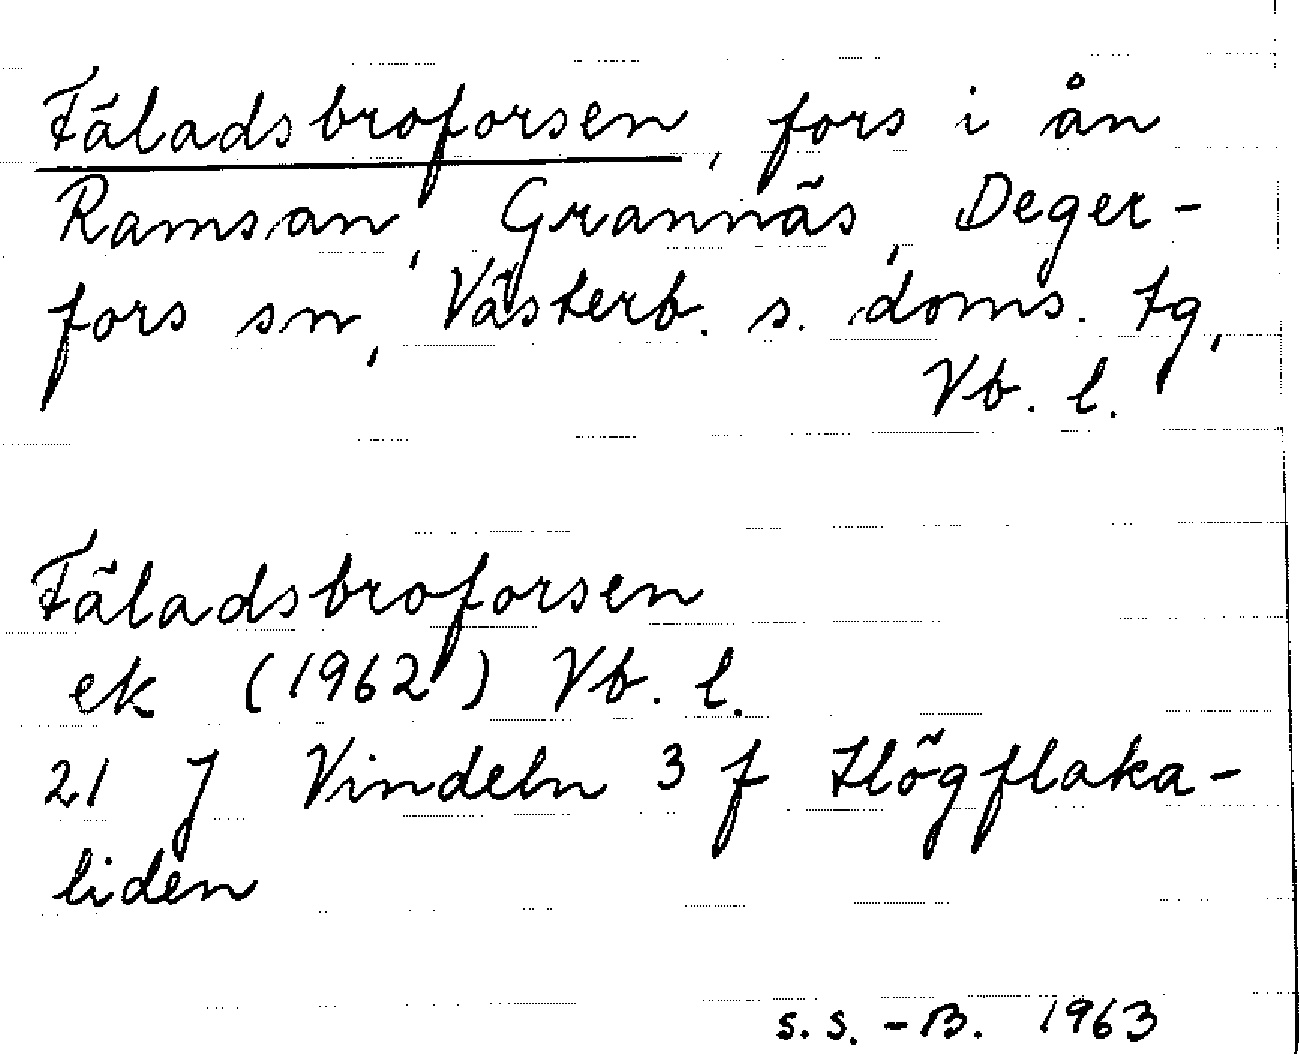 Fäladsbroforsen, fors i ån
Ramsan, Grannäs, Deger-
fors sn, Västerb. s. doms. tg,
Vb. l.
Fäladsbroforsen
ek (1962) Vb. l.
21 J Vindeln 3 f Högflaka-
liden
S.S.-B. 1963